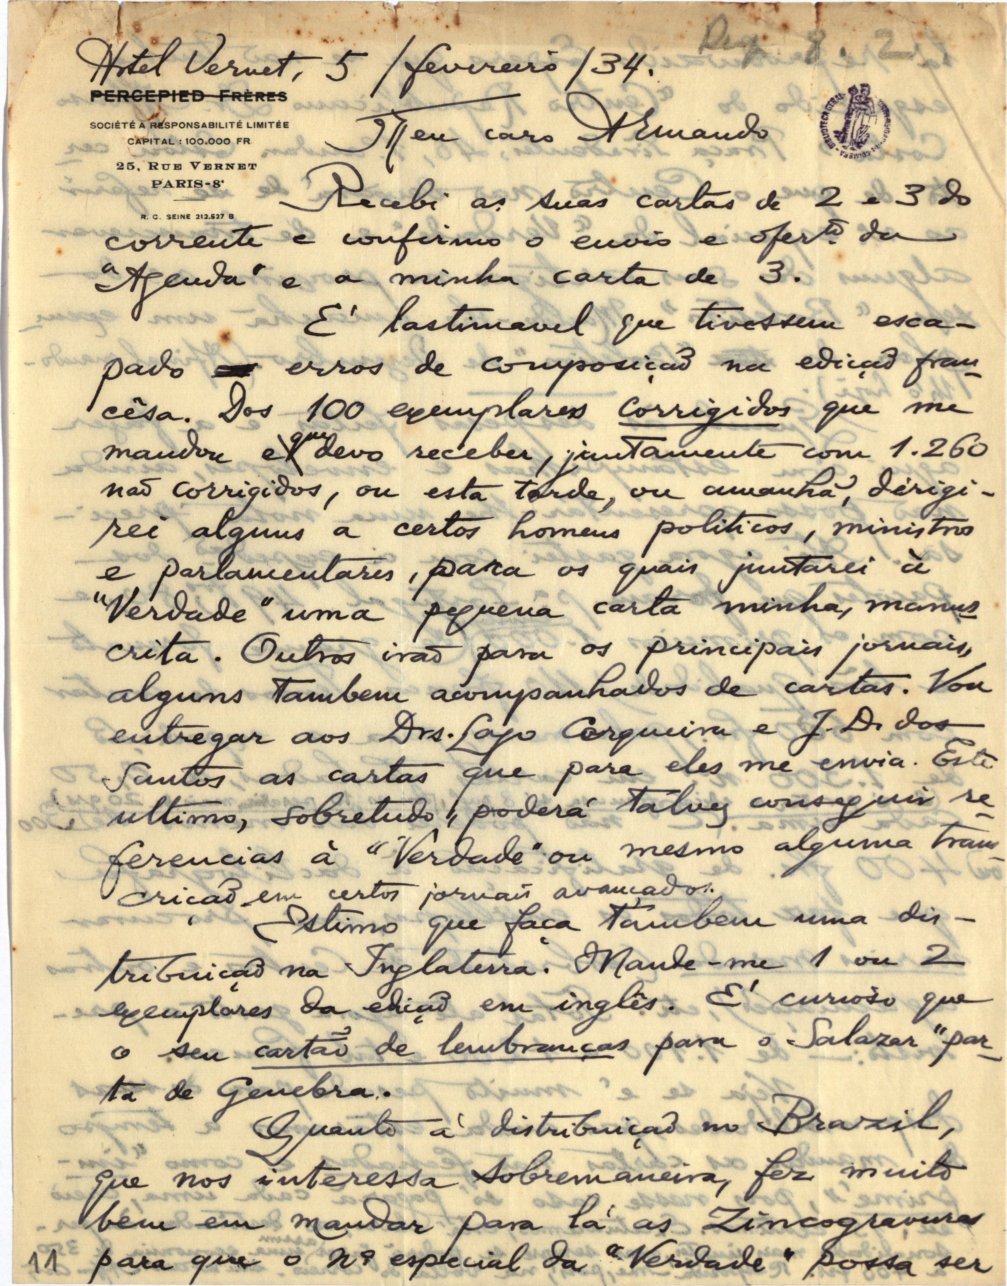 Hotel Vernet, 5/fevereiro/34.
PERCEPIED FRÈRES
SOCIÉTÉ A RESPONSABILITÉ LIMITÉE
CAPITAL : 100.000 FR
25, RUE VERNET
PARIS-8e
R. C. SEINE 212.527 B
Meu caro Armando
Recebi as suas cartas de 2 e 3 do
corrente e confirmo o envio e ofertº. da
"Agenda" e a minha carta de 3.
É lastimavel que tivessem esca-
pado erros de composição na edição fran-
cêsa. Dos 100 exemplares corrigidos que me
mandou e que devo receber, juntamente com 1.260
não corrigidos, ou esta tarde, ou amanhã, dirigi-
rei alguns a certos homens politicos, ministros
e parlamentares, para os quais juntarei à
"Verdade" uma pequena carta minha, manus-
crita. Outros irão para os principais jornais,
alguns tambem acompanhados de cartas. Vou
entregar aos Drs. Lago Cerqueira e J. D. dos
Santos as cartas que para eles me envia. Este
ultimo, sobretudo, poderá talvez conseguir re-
ferencias á "Verdade" ou mesmo alguma trans-
crição em certos jornais avançados.
Estimo que faça tambem uma dis-
tribuição na Inglaterra. Mande-me 1 ou 2
exemplares da edição em inglês. É curioso que
o seu cartão de lembranças para o Salazar "par-
ta de Genebra.
Quanto á distribuição no Brazil,
que nos interessa sobremaneira, fez muito
bem em mandar para lá as Zincogravuras
para que o nº especial da "Verdade" possa ser
11